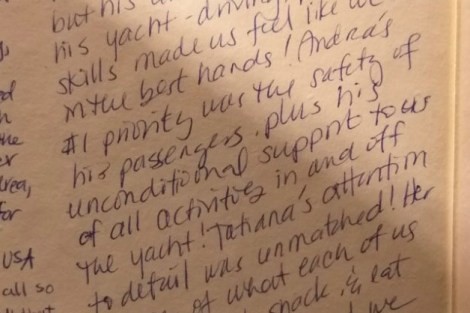 but his
his yacht-driving
skills made us feel like we
in the best hands! Andra's
#1 priority was the safety of
his passengers, plus his
unconditional support to us
of all activities in and off
the yacht! Tatiana's attention
to detail was unmatched! Her
of what each of us
snack, & eat
we
the
er
area,
for
USA
all so